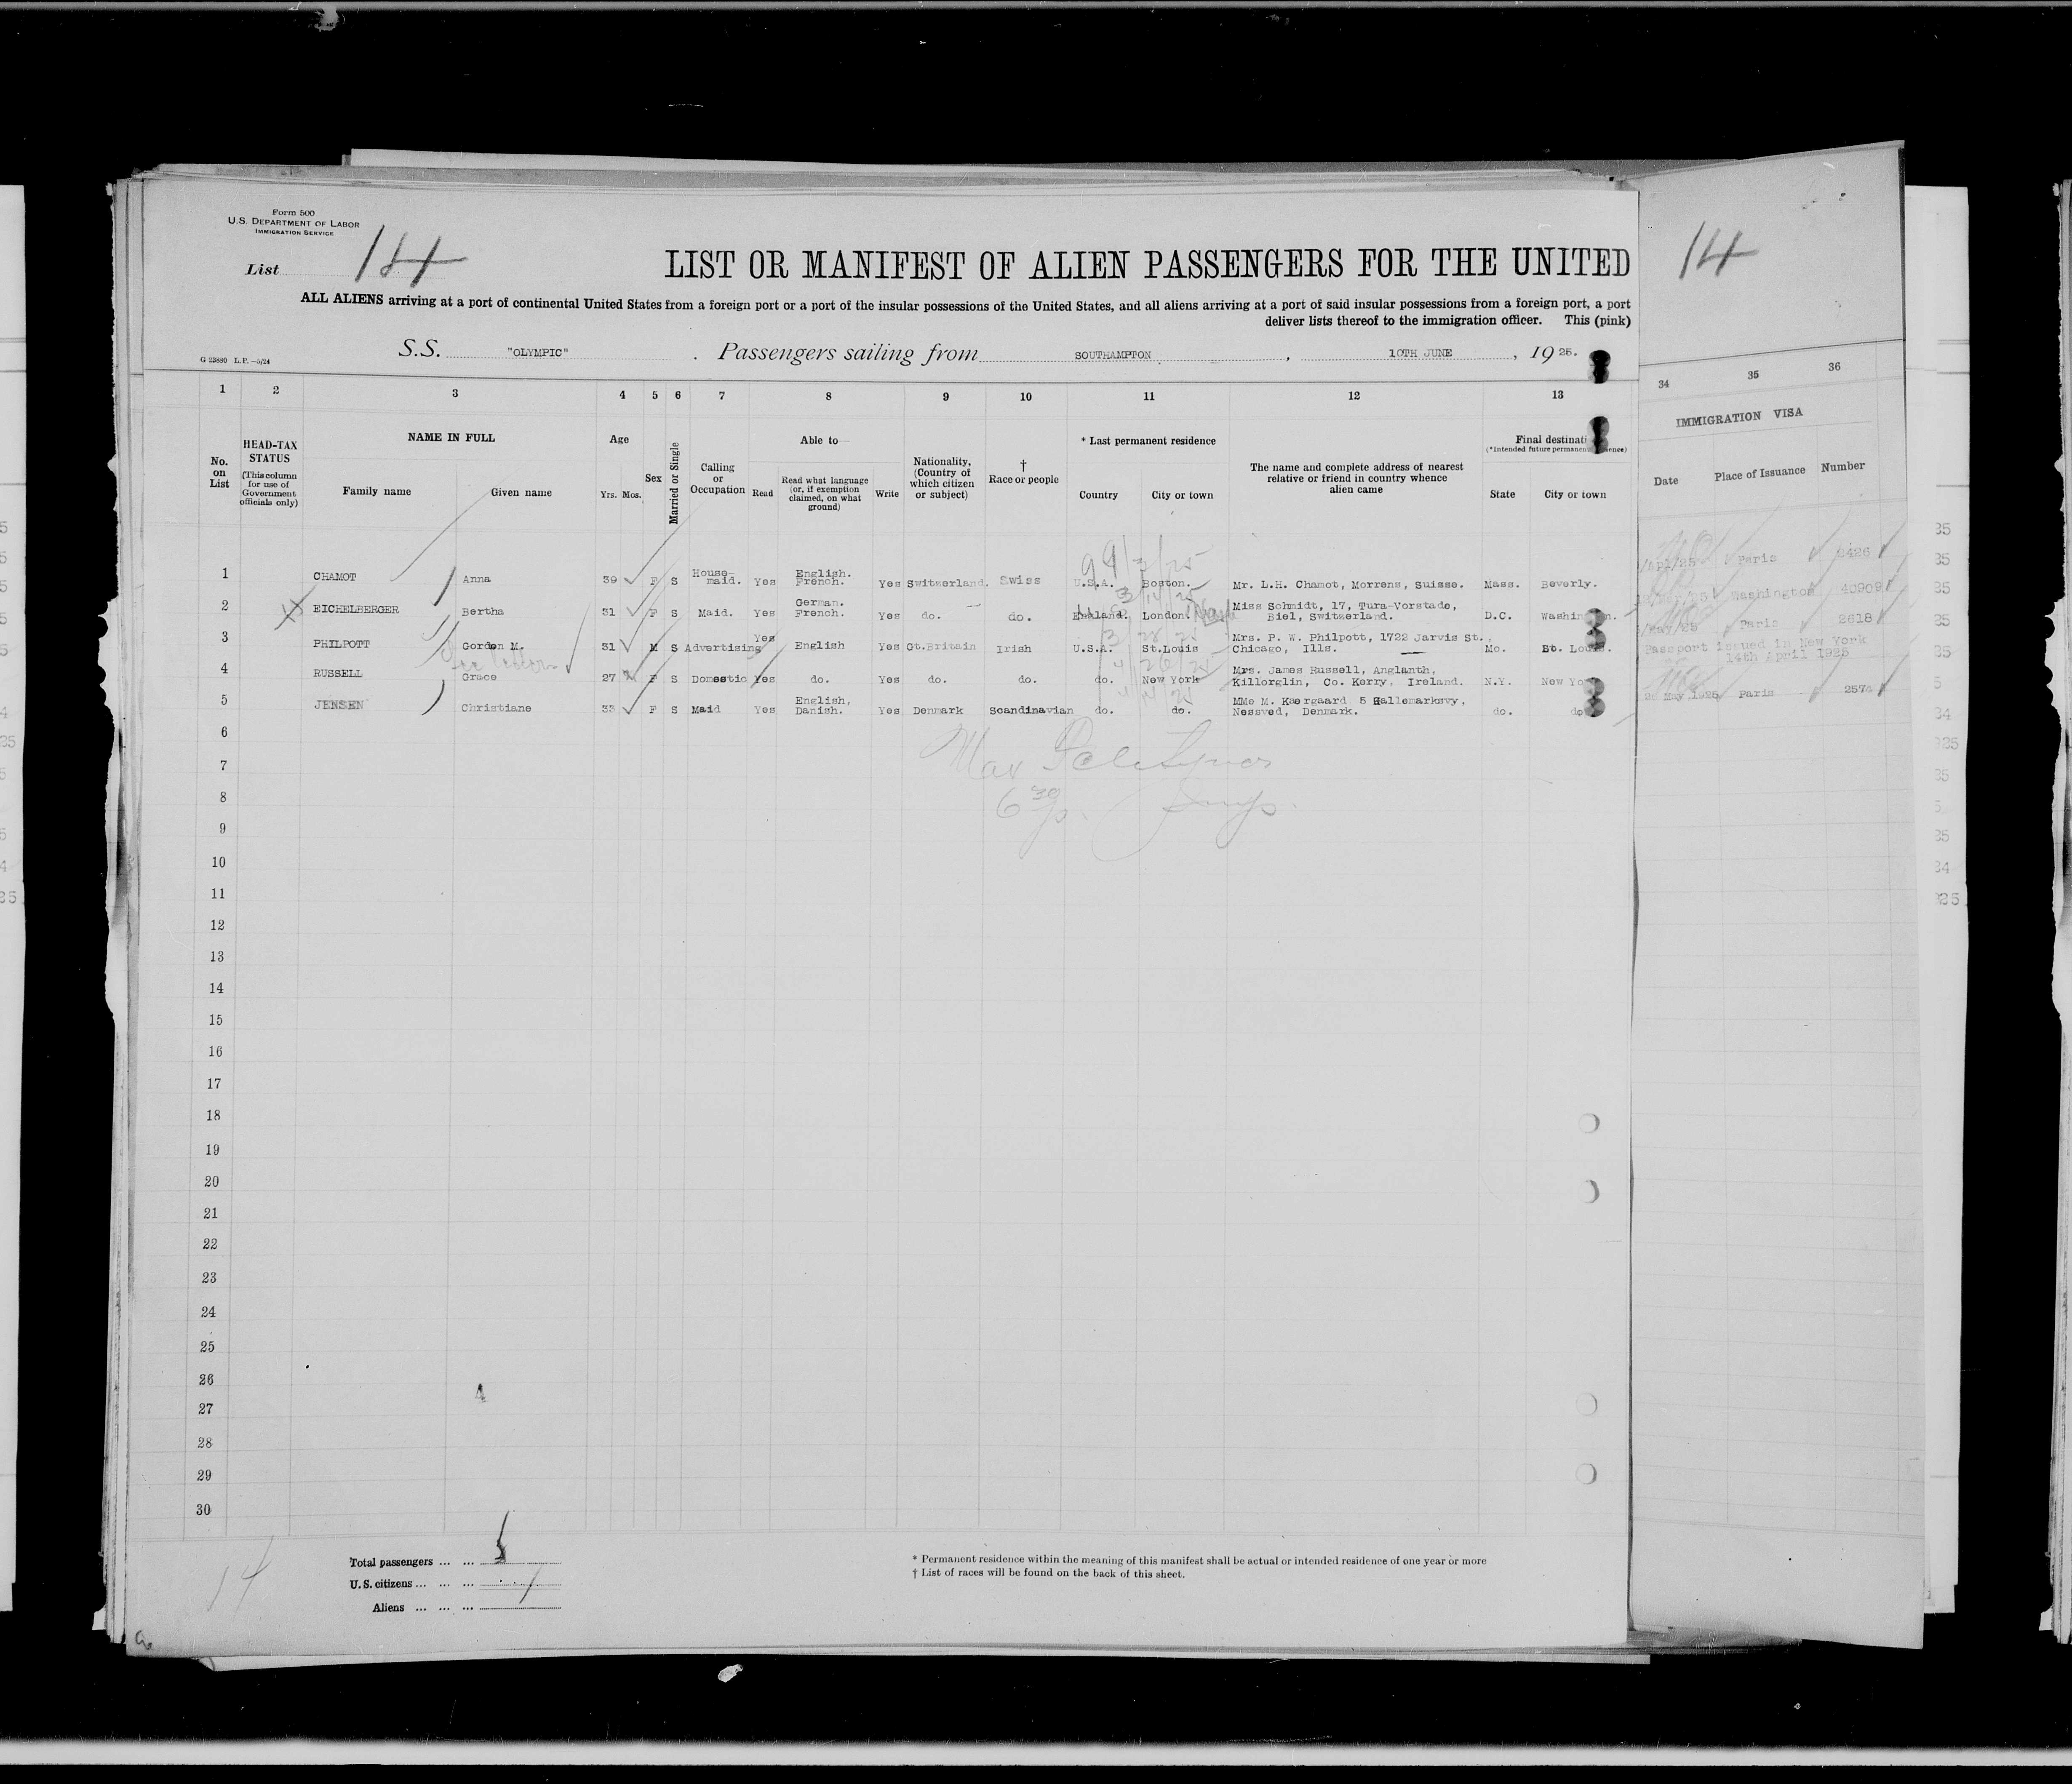 Form 500
U.S. DEPARTMENT OF LABOR
IMMIGRATION SERVICE
List 14
LIST OR MANIFEST OF ALIEN PASSENGERS FOR THE UNITED
14
ALL ALIENS arriving at a port of continental United States from a foreign port or a port of the insular possessions of the United States, and all aliens arriving at a port of said insular possessions from a foreign port, a port
deliver lists thereof to the immigration officer. This (pink)
G 23880 L.P.—5/24
S.S. "OLYMPIC" . Passengers sailing from SOUTHAMPTON , 10TH JUNE , 19 25.
1 2 3 4 5 6 7 8 9 10 11 12 13 34 35 36
No. on List
HEAD-TAX STATUS
(This column for use of Government officials only)
NAME IN FULL
Family name
Given name
Age
Yrs. Mos.
Sex
Married or Single
Calling or Occupation
Able to
Read
Read what language (or, if exemption claimed, on what ground)
Write
Nationality, (Country of which citizen or subject)
† Race or people
* Last permanent residence
Country
City or town
The name and complete address of nearest relative or friend in country whence alien came
Final destinati
(*Intended future permanent
State
City or town
IMMIGRATION VISA
Date
Place of Issuance
Number
1 CHAMOT Anna 39 F S House-maid. Yes English. French. Yes Switzerland. Swiss U.S.A. Boston. Mr. L.H. Chamot, Morrens, Suisse. Mass. Beverly. Paris
2 EICHELBERGER Bertha 31 F S Maid. Yes German. French. Yes do. do. London. Miss Schmidt, 17, Tura-Vorstade, Biel, Switzerland. D.C. Washington 40909
3 PHILPOTT Gordon M. 31 M S Advertising Yes English Yes Gt.Britain Irish U.S.A. St.Louis Mrs. P. W. Philpott, 1722 Jarvis St., Chicago, Ills. Mo. St. Paris 2618
4 RUSSELL Grace 27 F S Domestic Yes do. Yes do. do. do. New York Mrs. James Russell, Anglanth, Killorglin, Co. Kerry, Ireland. N.Y. New Passport issued in New York 14th April 1925
5 JENSEN Christiane 33 F S Maid Yes English, Danish. Yes Denmark Scandinavian do. do. MMe M. Kaergaard 5 Hallemarksvy, Nessved, Denmark. do. do May 1925 Paris
6
7
8
9
10
11
12
13
14
15
16
17
18
19
20
21
22
23
24
25
26
27
28
29
30
14
Total passengers ... ... 5
U.S. citizens ... ... ...
Aliens ... ... ...
* Permanent residence within the meaning of this manifest shall be actual or intended residence of one year or more
† List of races will be found on the back of this sheet.